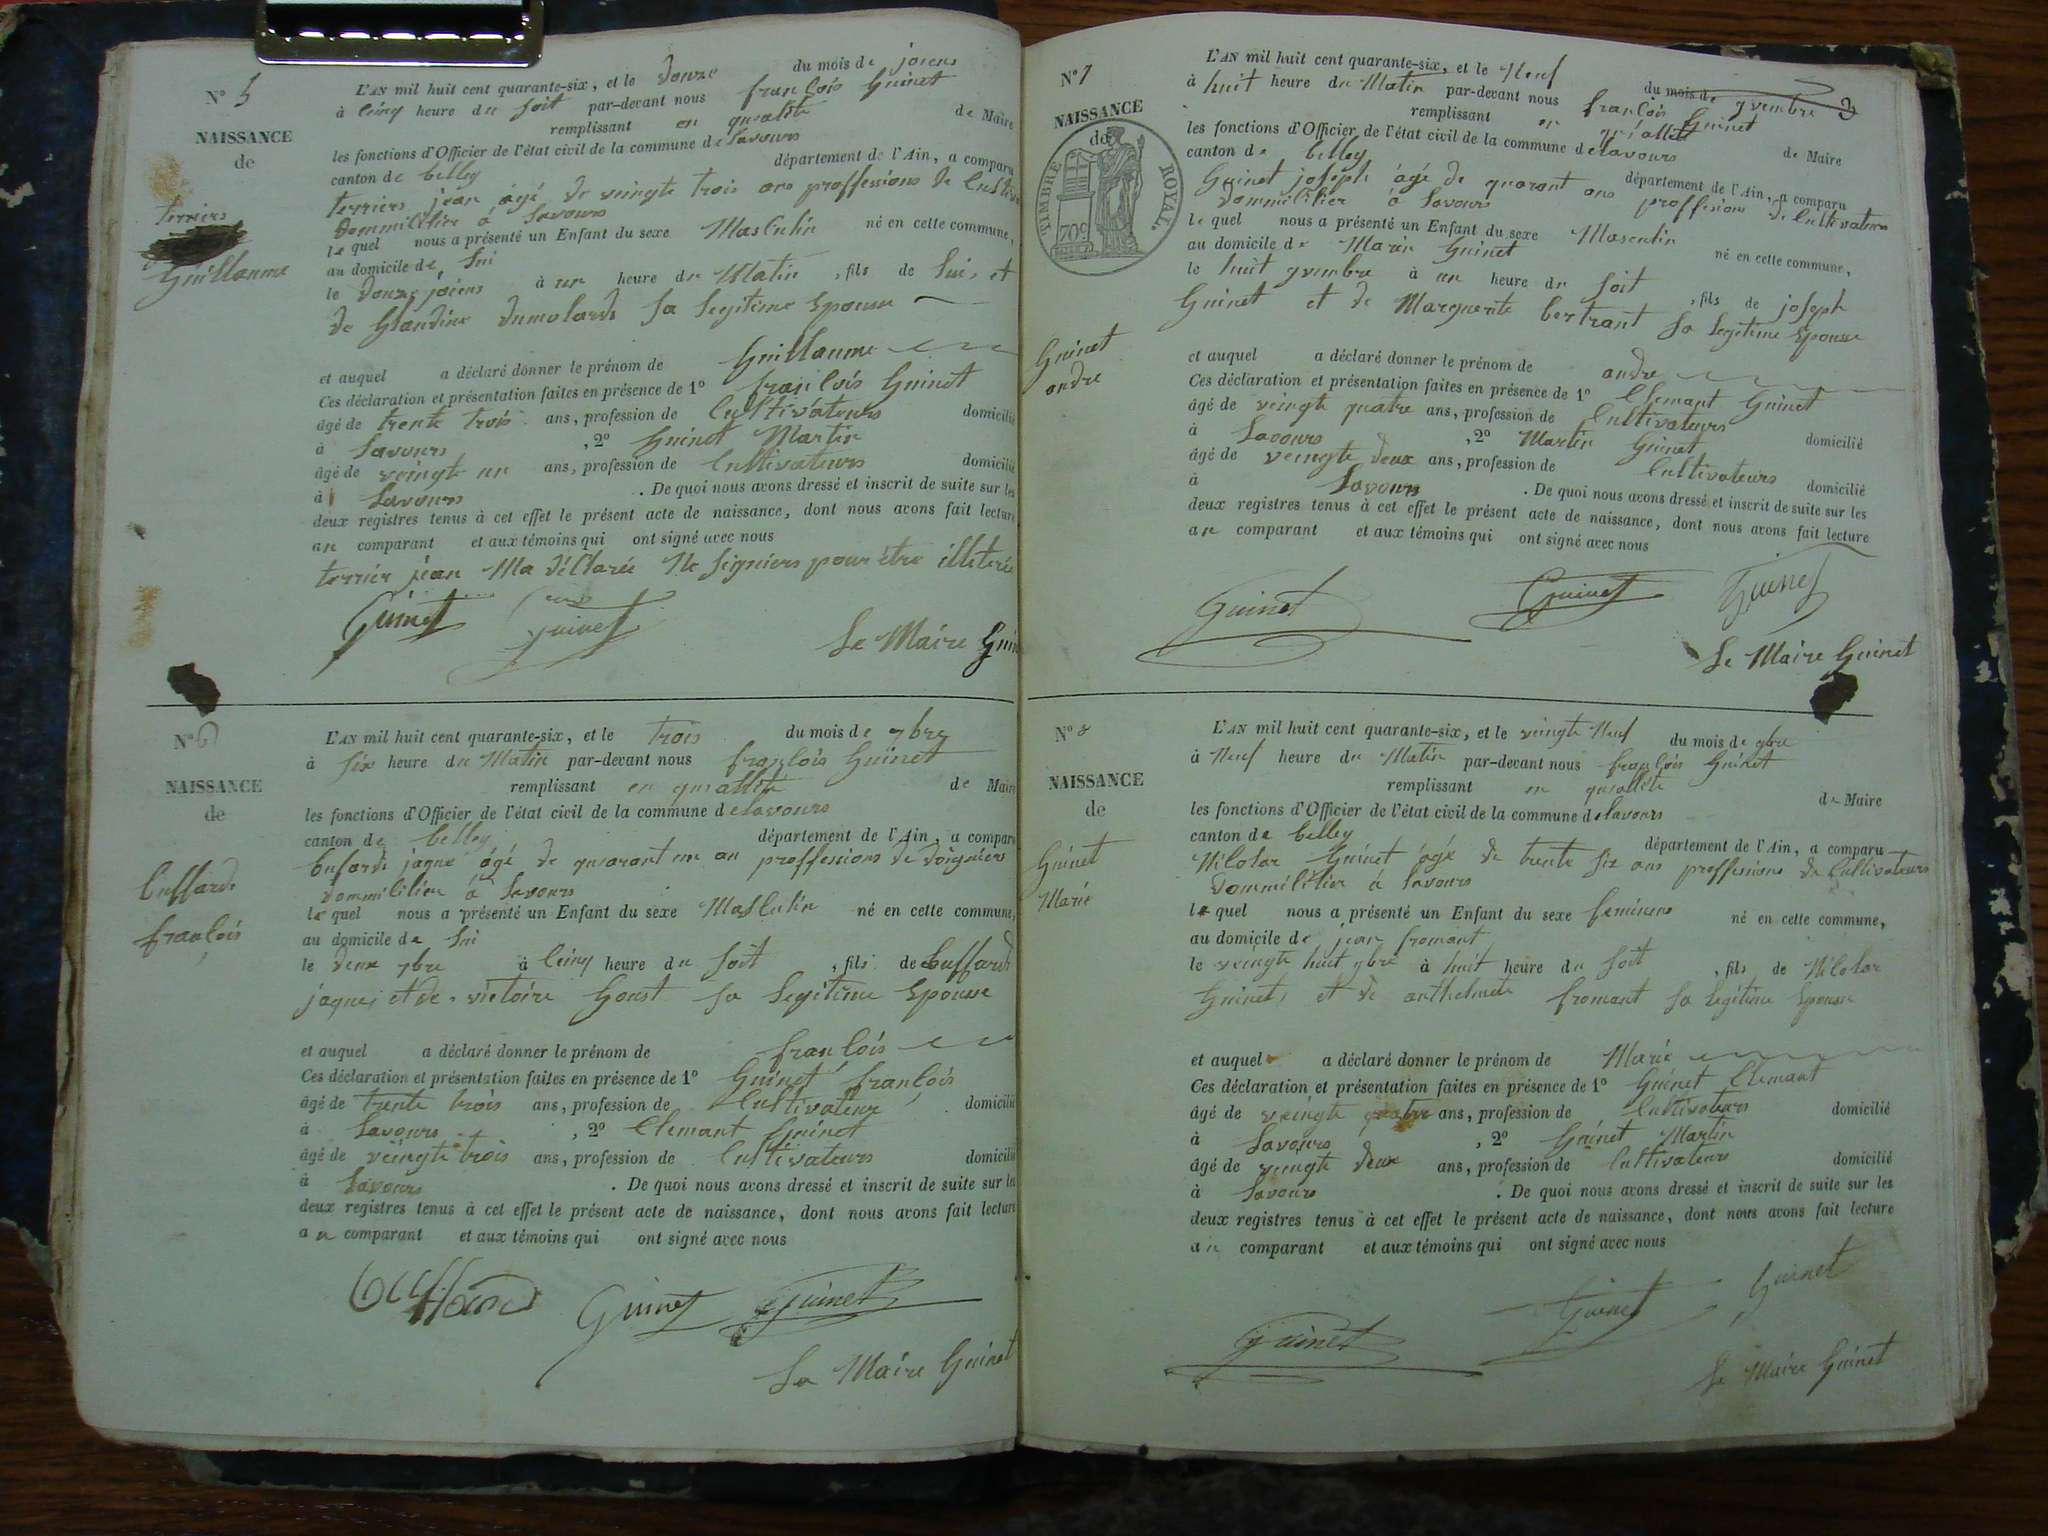 N° 5
NAISSANCE
de
terriers
Guillaume
L'AN mil huit cent quarante-six, et le douze du mois de joiens
à cinq heure du soit par-devant nous françois Guinet
remplissant en qualité de Maire
les fonctions d'Officier de l'état civil de la commune de Savours
canton de belley département de l'Ain, a comparu
terriers jean âgé de veingte trois ans proffessions de
dommicilier à Savours
le quel nous a présenté un Enfant du sexe Masculin né en cette commune,
au domicile de lui
le douze joiens à un heure du Matin, fils de lui, et
de Glaudine dumolard sa legitime Epouse
et auquel a déclaré donner le prénom de Guillaume
Ces déclaration et présentation faites en présence de 1° françois Guinet
âgé de trente trois ans, profession de Cultivateurs domicilié
à Savours, 2° Guinet Martin
âgé de veingte un ans, profession de Cultivateurs domicilié
à Savours. De quoi nous avons dressé et inscrit de suite sur les
deux registres tenus à cet effet le présent acte de naissance, dont nous avons fait lecture
au comparant et aux témoins qui ont signé avec nous
terrier jean Ma déclarée Ne signiers pour être
Guinet guinet
Le Maire
N° 6
NAISSANCE
de
Cuffard
françois
L'AN mil huit cent quarante-six, et le trois du mois de 7bre
à six heure du Matin par-devant nous françois Guinet
remplissant en quallite de Maire
les fonctions d'Officier de l'état civil de la commune de Savours
canton de belley département de l'Ain, a comparu
jaque âgé de quarant un an proffessions de doigniers
dommicilier à Savours
le quel nous a présenté un Enfant du sexe Masculin né en cette commune,
au domicile de lui
le deux 7bre à cinq heure du soit, fils de Cuffard
jaque, et de victoire sa legitime Epouse
et auquel a déclaré donner le prénom de françois
Ces déclaration et présentation faites en présence de 1° Guinet françois
âgé de trente trois ans, profession de Cultivateur domicilié
à Savours, 2° Clemant Guinet
âgé de veingte trois ans, profession de Cultivateurs domicilié
à Savours. De quoi nous avons dressé et inscrit de suite sur les
deux registres tenus à cet effet le présent acte de naissance, dont nous avons fait lecture
au comparant et aux témoins qui ont signé avec nous
Guinet Guinet
Le Maire Guinet
N° 7
NAISSANCE
de
TIMBRE ROYAL.
70c
Guinet
andre
L'AN mil huit cent quarante-six, et le Neuf du mois de 9vembre
à huit heure du Matin par-devant nous françois Guinet
remplissant en quallite de Maire
les fonctions d'Officier de l'état civil de la commune de Savours
canton de belley département de l'Ain, a comparu
Guinet joseph âgé de quarant ans proffesions de Cultivateurs
dommicilier à Savours
le quel nous a présenté un Enfant du sexe Masculin né en cette commune,
au domicile de Marin Guinet
le huit 9vembre à un heure du soit, fils de joseph
Guinet et de Marguerite bertrant sa legitime Epouse
et auquel a déclaré donner le prénom de andre
Ces déclaration et présentation faites en présence de 1° Clemant Guinet
âgé de veingte quatre ans, profession de Cultivateurs domicilié
à Savours, 2° Martin Guinet
âgé de veingte deux ans, profession de Cultivateurs domicilié
à Savours. De quoi nous avons dressé et inscrit de suite sur les
deux registres tenus à cet effet le présent acte de naissance, dont nous avons fait lecture
au comparant et aux témoins qui ont signé avec nous
Guinet Guinet Guinet
Le Maire Guinet
N° 8
NAISSANCE
de
Guinet
Marie
L'AN mil huit cent quarante-six, et le veingte Neuf du mois de 9bre
à Neuf heure du Matin par-devant nous françois Guinet
remplissant en quallite de Maire
les fonctions d'Officier de l'état civil de la commune de Savours
canton de belley département de l'Ain, a comparu
Nicolar Guinet âgé de trente six ans proffesions de Cultivateurs
dommicilier à Savours
le quel nous a présenté un Enfant du sexe feminin né en cette commune,
au domicile de jean fromant
le veingte huit 9bre à huit heure du soit, fils de Nicolar
Guinet, et de anthelmete fromant sa legitime Epouse
et auquel a déclaré donner le prénom de Marie
Ces déclaration et présentation faites en présence de 1° Guinet Clemant
âgé de veingte quatre ans, profession de Cultivateurs domicilié
à Savours, 2° Guinet Martin
âgé de veingte deux ans, profession de Cultivateurs domicilié
à Savours. De quoi nous avons dressé et inscrit de suite sur les
deux registres tenus à cet effet le présent acte de naissance, dont nous avons fait lecture
au comparant et aux témoins qui ont signé avec nous
guinet Guinet Guinet
Le Maire Guinet